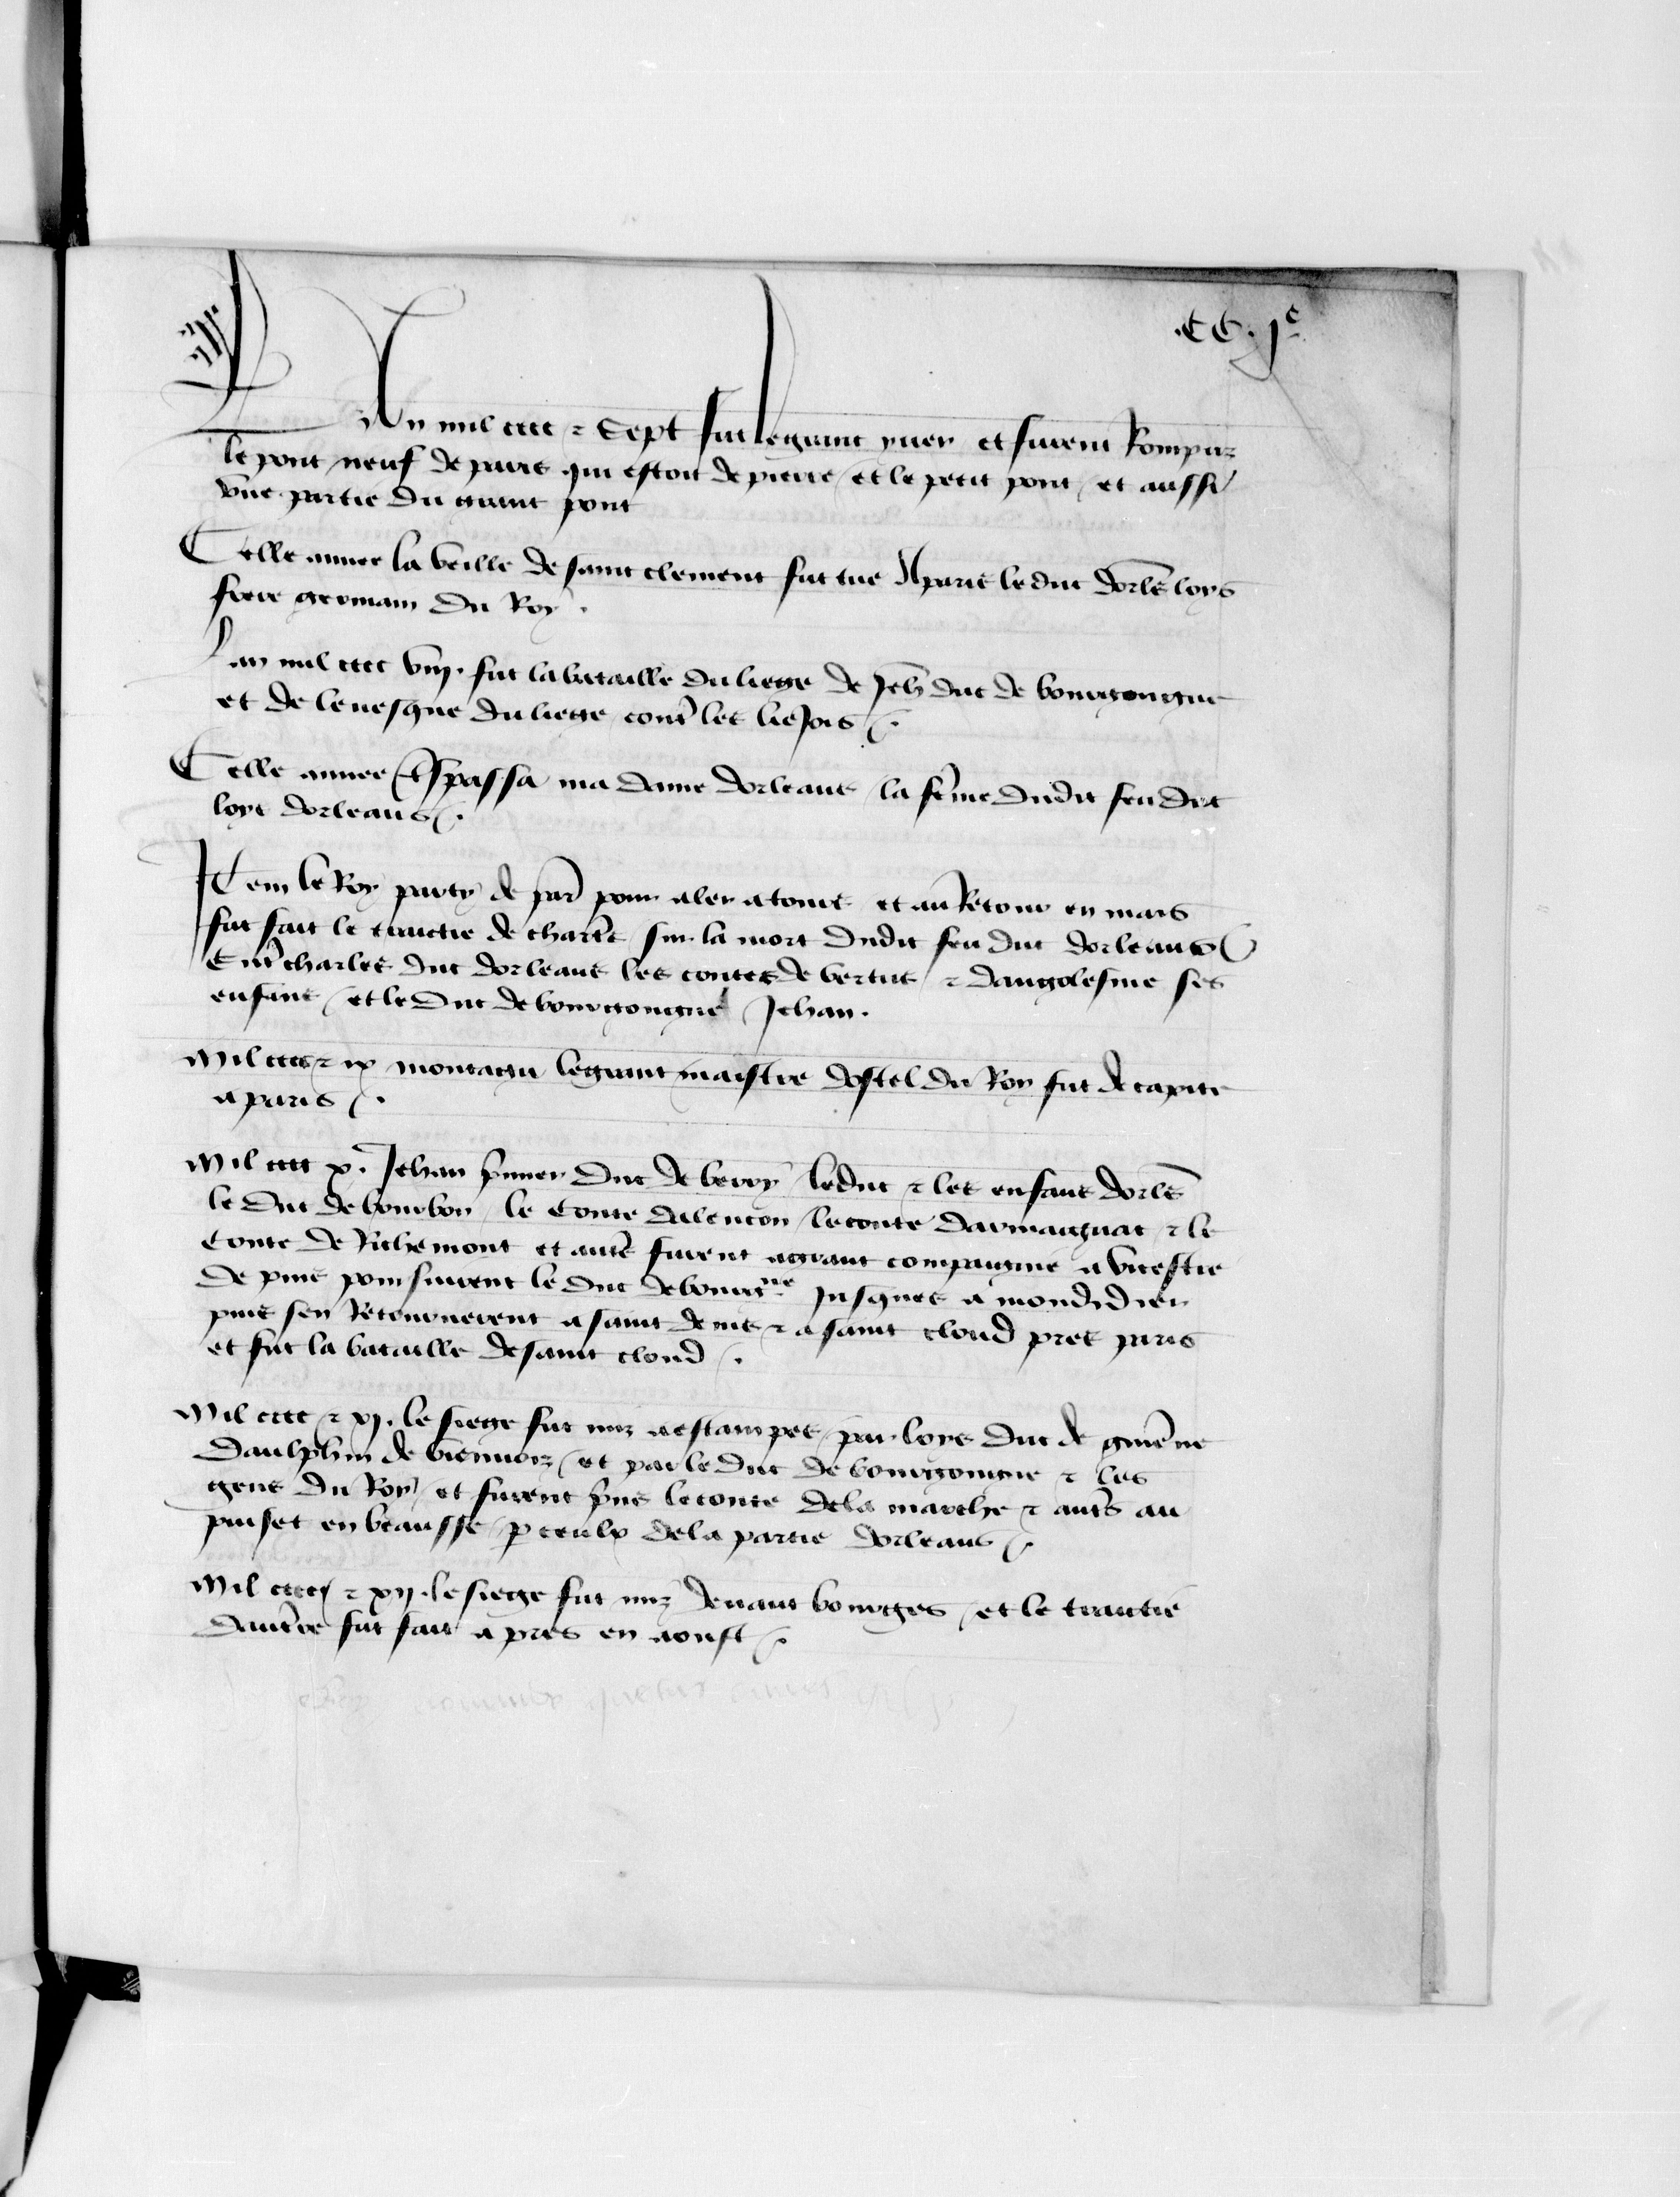 .CC. j^e
Lan mil cccc ⁊ Sept fut le grant yuer et furent Rompuz
le pont neuf de paris qui estoit de pierre / et le petit pont / et aussi
vne partie du grant pont
Celle annee la veille de saint clement fut tue A paris le duc dorlẽ loys
frere germain du Roy .
Lan mil cccc viij. fut la bataille du liege de Jehã duc de bourgongne
et de leuesque du liege / contr̃ les liejois /.
Celle annee t̃spassa ma dame dorleans / la fẽme dudit feu duc
loys dorleans /.
Item le Roy party de par̃ pour aler a tours et au Retour en mars
fut fait le traictie de chartr̃s sur la mort dudit feu duc dorleans /
Entr̃ charles duc dorleans les contes de vertus ⁊ dangolesme ses
enfans / et le duc de bourgongne Jehan .
Mil cccc ⁊ ix montagu le grant maistre dostel du Roy fut decapite
a paris /.
Mil cccc x. Jehan p̃mier duc de berry / le duc ⁊ les enfans dorlẽ
le duc de bourbon / le conte dalencon / le conte darmaignac / ⁊ le
conte de Richemont et autr̃s furent a grant compaignie a vicestre
de puis poursuirent le duc de bourg^ne jusques a mondidier
puis sen Retournerent a saint denis ⁊ a saint cloud pres paris
et fut la bataille de saint cloud /.
Mil cccc ⁊ xj. le siege fut mis a estampes / par loys duc de guiẽne
daulphin de viennois / et par le duc de bourgongne ⁊ les
gens du Roy / et furent p̃ns le conte de la marche ⁊ autr̃s au
puiset en beausse / ꝑ ceulx de la partie dorleans /.
Mil cccc ⁊ xij. le siege fut mis deuant bourges / et le traictie
daucẽre fut fait a pres en aoust /.